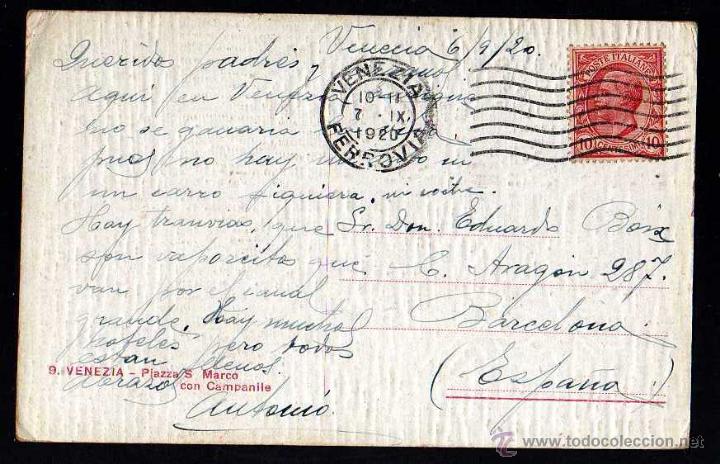 Venecia 6/9/20.
Queridos padres y
Aquí en Venezia
no se ganaria
pues no hay ni
un carro siquiera, ni coche
Hay tranvias, que
son vaporcitos que
van por el canal
grande. Hay muchos
hoteles pero todos
estan llenos.
Abrazos
Antonio.
VENEZIA
10-11
7 · IX
1920
FERROVIA
POSTE ITALIANE
10 CENTESIMI 10
Sr. Don. Eduardo Boix
C. Aragón 287.
Barcelona
(España)
9. VENEZIA - Piazza S Marco
con Campanile
www.todocoleccion.net